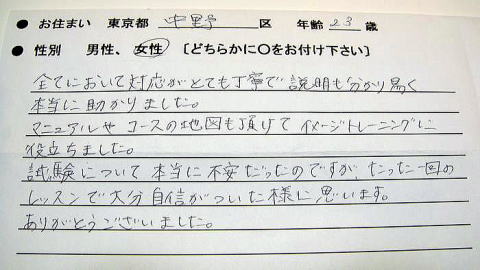 ● お住まい 東京都 中野 区 年齢 23 歳
● 性別 男性、女性 〔どちらかに〇をお付け下さい〕
全てにおいて対応がとても丁寧で説明も分かり易く
本当に助かりました。
マニュアルやコースの地図も頂けてイメージトレーニングに
役立ちました。
試験について本当に不安だったのですが、たった一回の
レッスンで大分自信がついた様に思います。
ありがとうございました。